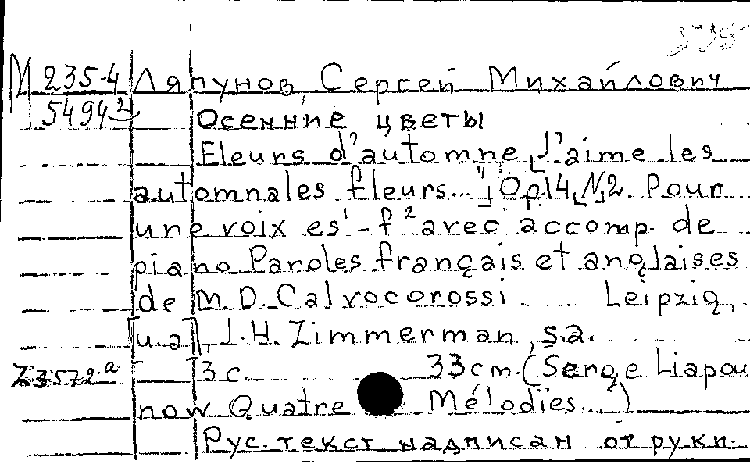 М 235-4 Ляпунов, Сергей Михайлович
5494² Осенние цветы
Fleurs d'automne „J'aime les
automnales fleurs..." Op14, N2. Pour
une voix es¹-f² avec accomp. de
piano Paroles français et anglaises
de M. D. Calvocorossi. Leipzig,
[u.a], J.H. Zimmerman, s.a.
Z3572ᵃ 3c 33cm. (Serge Liapou
now Quatre Mélodies...)
Рус. текст надписан от руки.